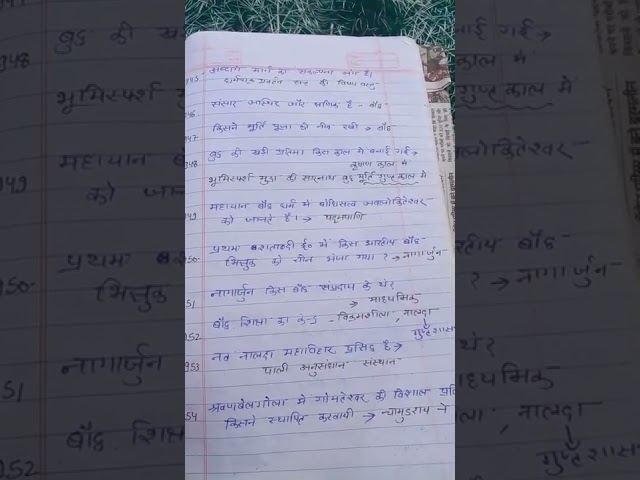 945. अष्टांग मार्ग की संकल्पना अंग है।
धर्मचक्र प्रवर्तन सूत्र की विषय वस्तु
946. संसार अस्थिर और क्षणिक है - बौद्ध
947. किसने मूर्ति पूजा की नींव रखी → बौद्ध
948. बुद्ध की खड़ी प्रतिमा किस काल मे बनाई गई →
कुषाण काल मे
भूमिस्पर्श मुद्रा की सारनाथ बुद्ध मूर्ति गुप्त काल मे
949. महायान बौद्ध धर्म मे बोधिसत्व अवलोकितेश्वर
को जानते है। → पद्मपाणि
950. प्रथम शताब्दी ई० में किस भारतीय बौद्ध
भिक्षुक को चीन भेजा गया ? → नागार्जुन
951. नागार्जुन किस बौद्ध संप्रदाय के थे?
→ माध्यमिक
952. बौद्ध शिक्षा का केन्द्र - विक्रमशीला, नालंदा
↓
गुप्त शास
953. नव नालंदा महाविहार प्रसिद्ध है →
पाली अनुसंधान संस्थान
954. श्रवणबेलगोला मे गोमतेश्वर की विशाल प्रति
किसने स्थापित करवायी → चामुंडराय ने